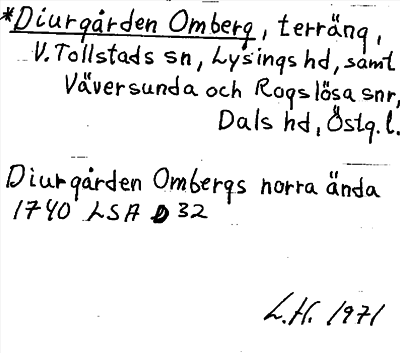 *Diurgården Omberg, terräng,
V. Tollstads sn, Lysings hd, samt
Väversunda och Rogslösa snr,
Dals hd, Östg. l.
Diurgården Ombergs norra ända
1740 LSA D 32
L.H. 1971